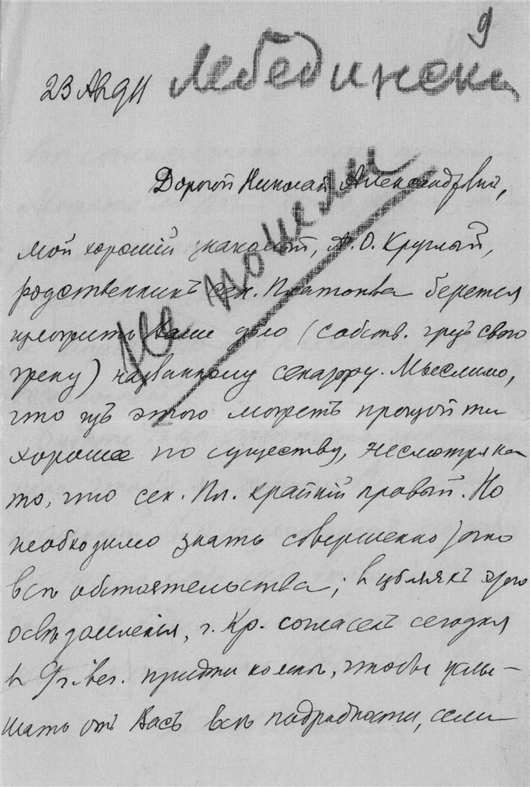 9
Лебединский
23 Апр 911
Дорогой Николай Александрович,
не пошели
мой хороший знакомый, А. О. Круглый,
родственникъ сен. Платонова берется
дѣло (собств. чрезъ свою
жену) названному сенатору. Мыслимо,
что изъ этого можетъ произойти
хорошее по существу, несмотря на
то, что сен. Пл. крайній правый. Но
необходимо знать совершенно точно
всѣ обстоятельства; въ цѣляхъ этого
освѣдомленія, г. Кр. согласенъ сегодня
въ 9 ч. веч. придти ко мнѣ, чтобы услы-
шать отъ Васъ всѣ подробности, если